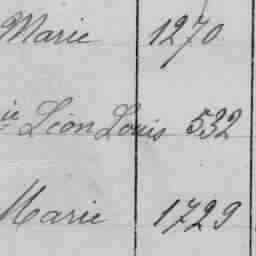 Marie 1270
ie Léon Louis 532
Marie 1729